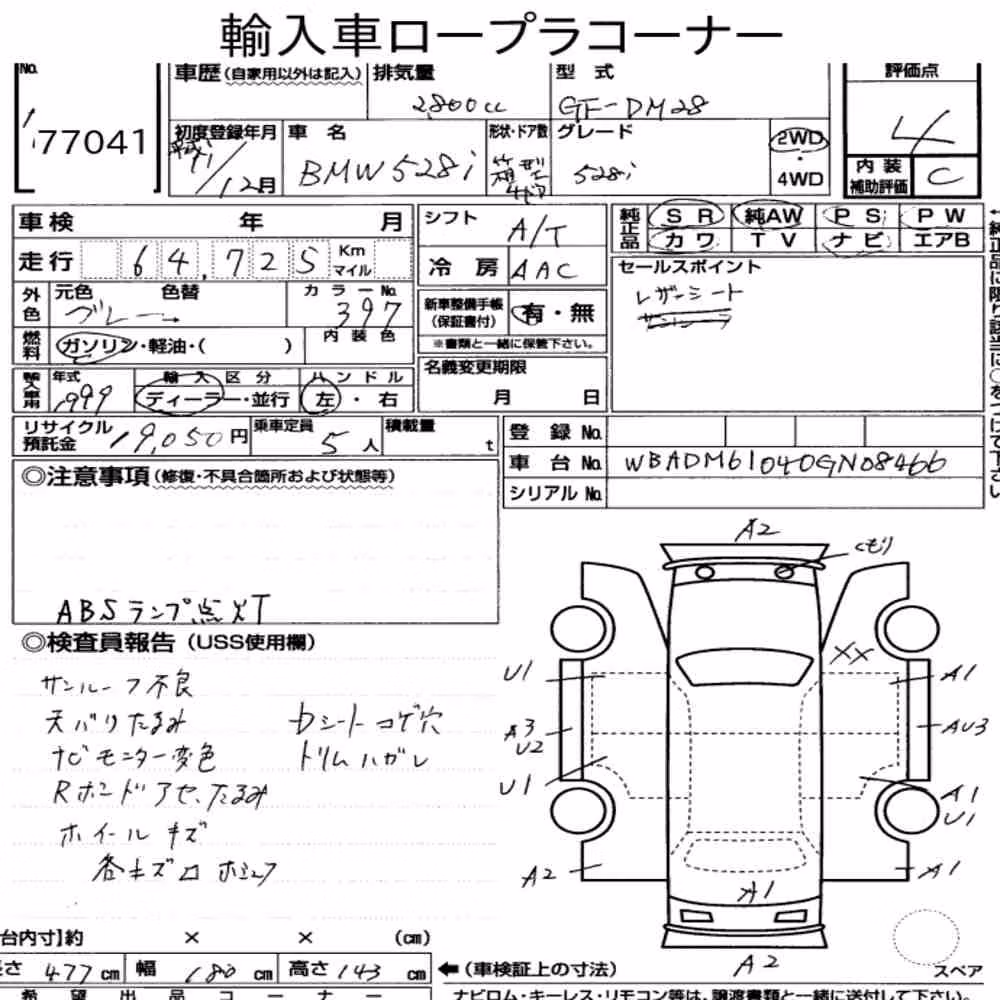 輸入車ロープラコーナー
No.
77041
車歴(自家用以外は記入) 排気量 型式 評価点
2,800cc GF-DM28 4
初度登録年月 車名 形状・ドア数 グレード 2WD
平成11/12月 BMW528i 箱型 528i ・ 4WD
内装補助評価 C
車検 年 月 シフト A/T
純正品 SR 純AW PS PW
カワ TV ナビ エアB
走行 64,725 Km マイル
冷房 AAC
セールスポイント
レザーシート
外色 元色 色替 カラーNo.
グレー→ 397
新車整備手帳(保証書付) 有・無
※書類と一緒に保管下さい。
燃料 ガソリン・軽油・( ) 内装色
名義変更期限
月 日
輸入車 年式 輸入区分 ハンドル
1999 ディーラー・並行 左・右
リサイクル預託金 19,050円 乗車定員 5人 積載量 t
登録No.
車台No. WBADM61040GN08466
シリアルNo.
◎注意事項(修復・不具合箇所および状態等)
ABSランプ点灯
◎検査員報告(USS使用欄)
サンルーフ不良
天バリたるみ Dシートコゲ穴
ナビモニター変色 トリムハガレ
Rボンドアセ、たるみ
ホイールキズ
各キズ
A2
くもり
XX
U1 A1
A3 U2 AU3
U1 A1 U1
A2 A1 A1
A2
スペア
台内寸】約 × × (cm)
長さ 477cm 幅 180cm 高さ 143cm
←(車検証上の寸法)
希望出品コーナー
ナビロム・キーレス・リモコン等は、譲渡書類と一緒に送付して下さい。